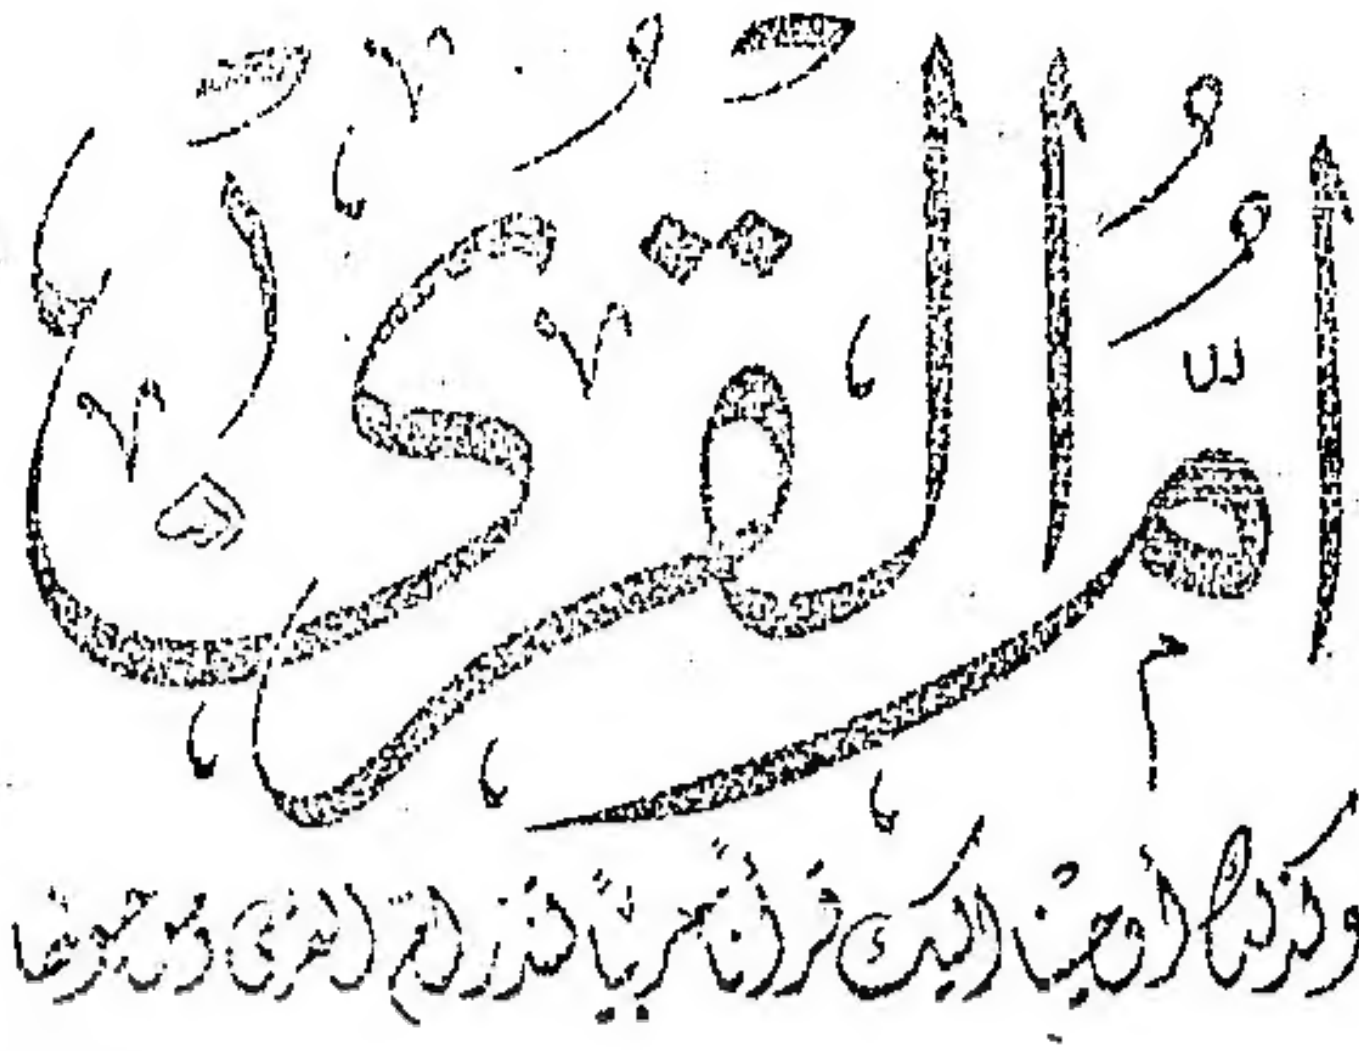 ام القرى
وكذلك أوحينا اليك قرآنا عربيا لتنذر أم القرى ومن حولها